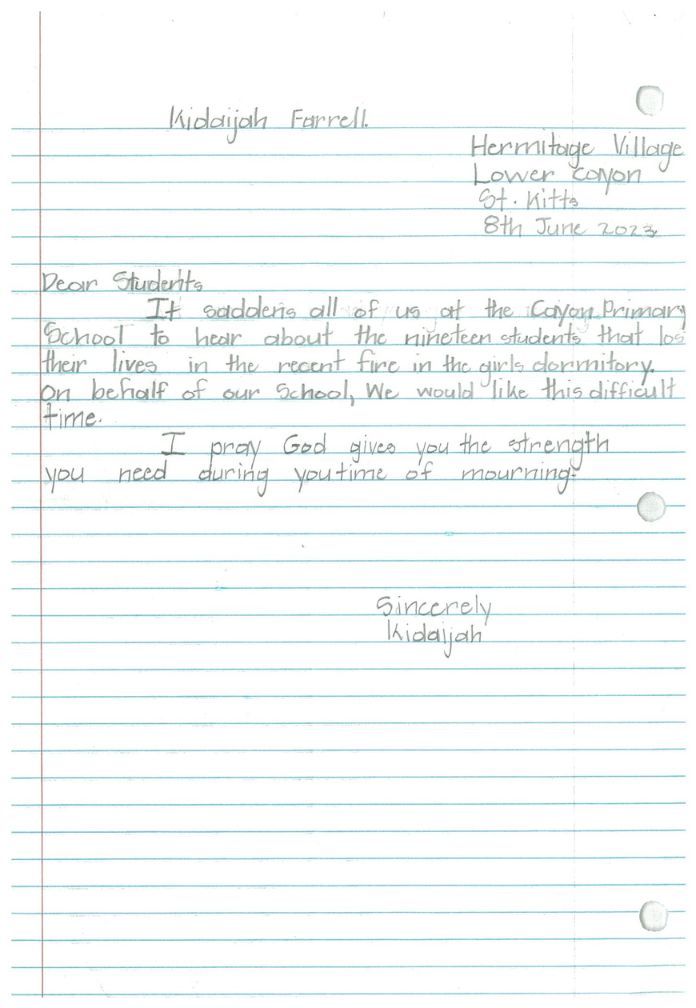 Kidaijah Farrell.
Hermitage Village
Lower Cayon
St. Kitts
8th June 2023
Dear Students
It saddens all of us at the Cayon Primary
School to hear about the nineteen students that los
their lives in the recent fire in the girls dormitory.
On behalf of our School, We would like this difficult
time.
I pray God gives you the strength
you need during you time of mourning.
Sincerely
Kidaijah